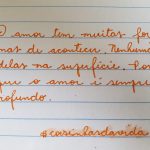 O amor tem muitas for
mas de acontecer. Nenhuma
delas na superfície. Por
que o amor é sempre
profundo.
@coisinhasdavida